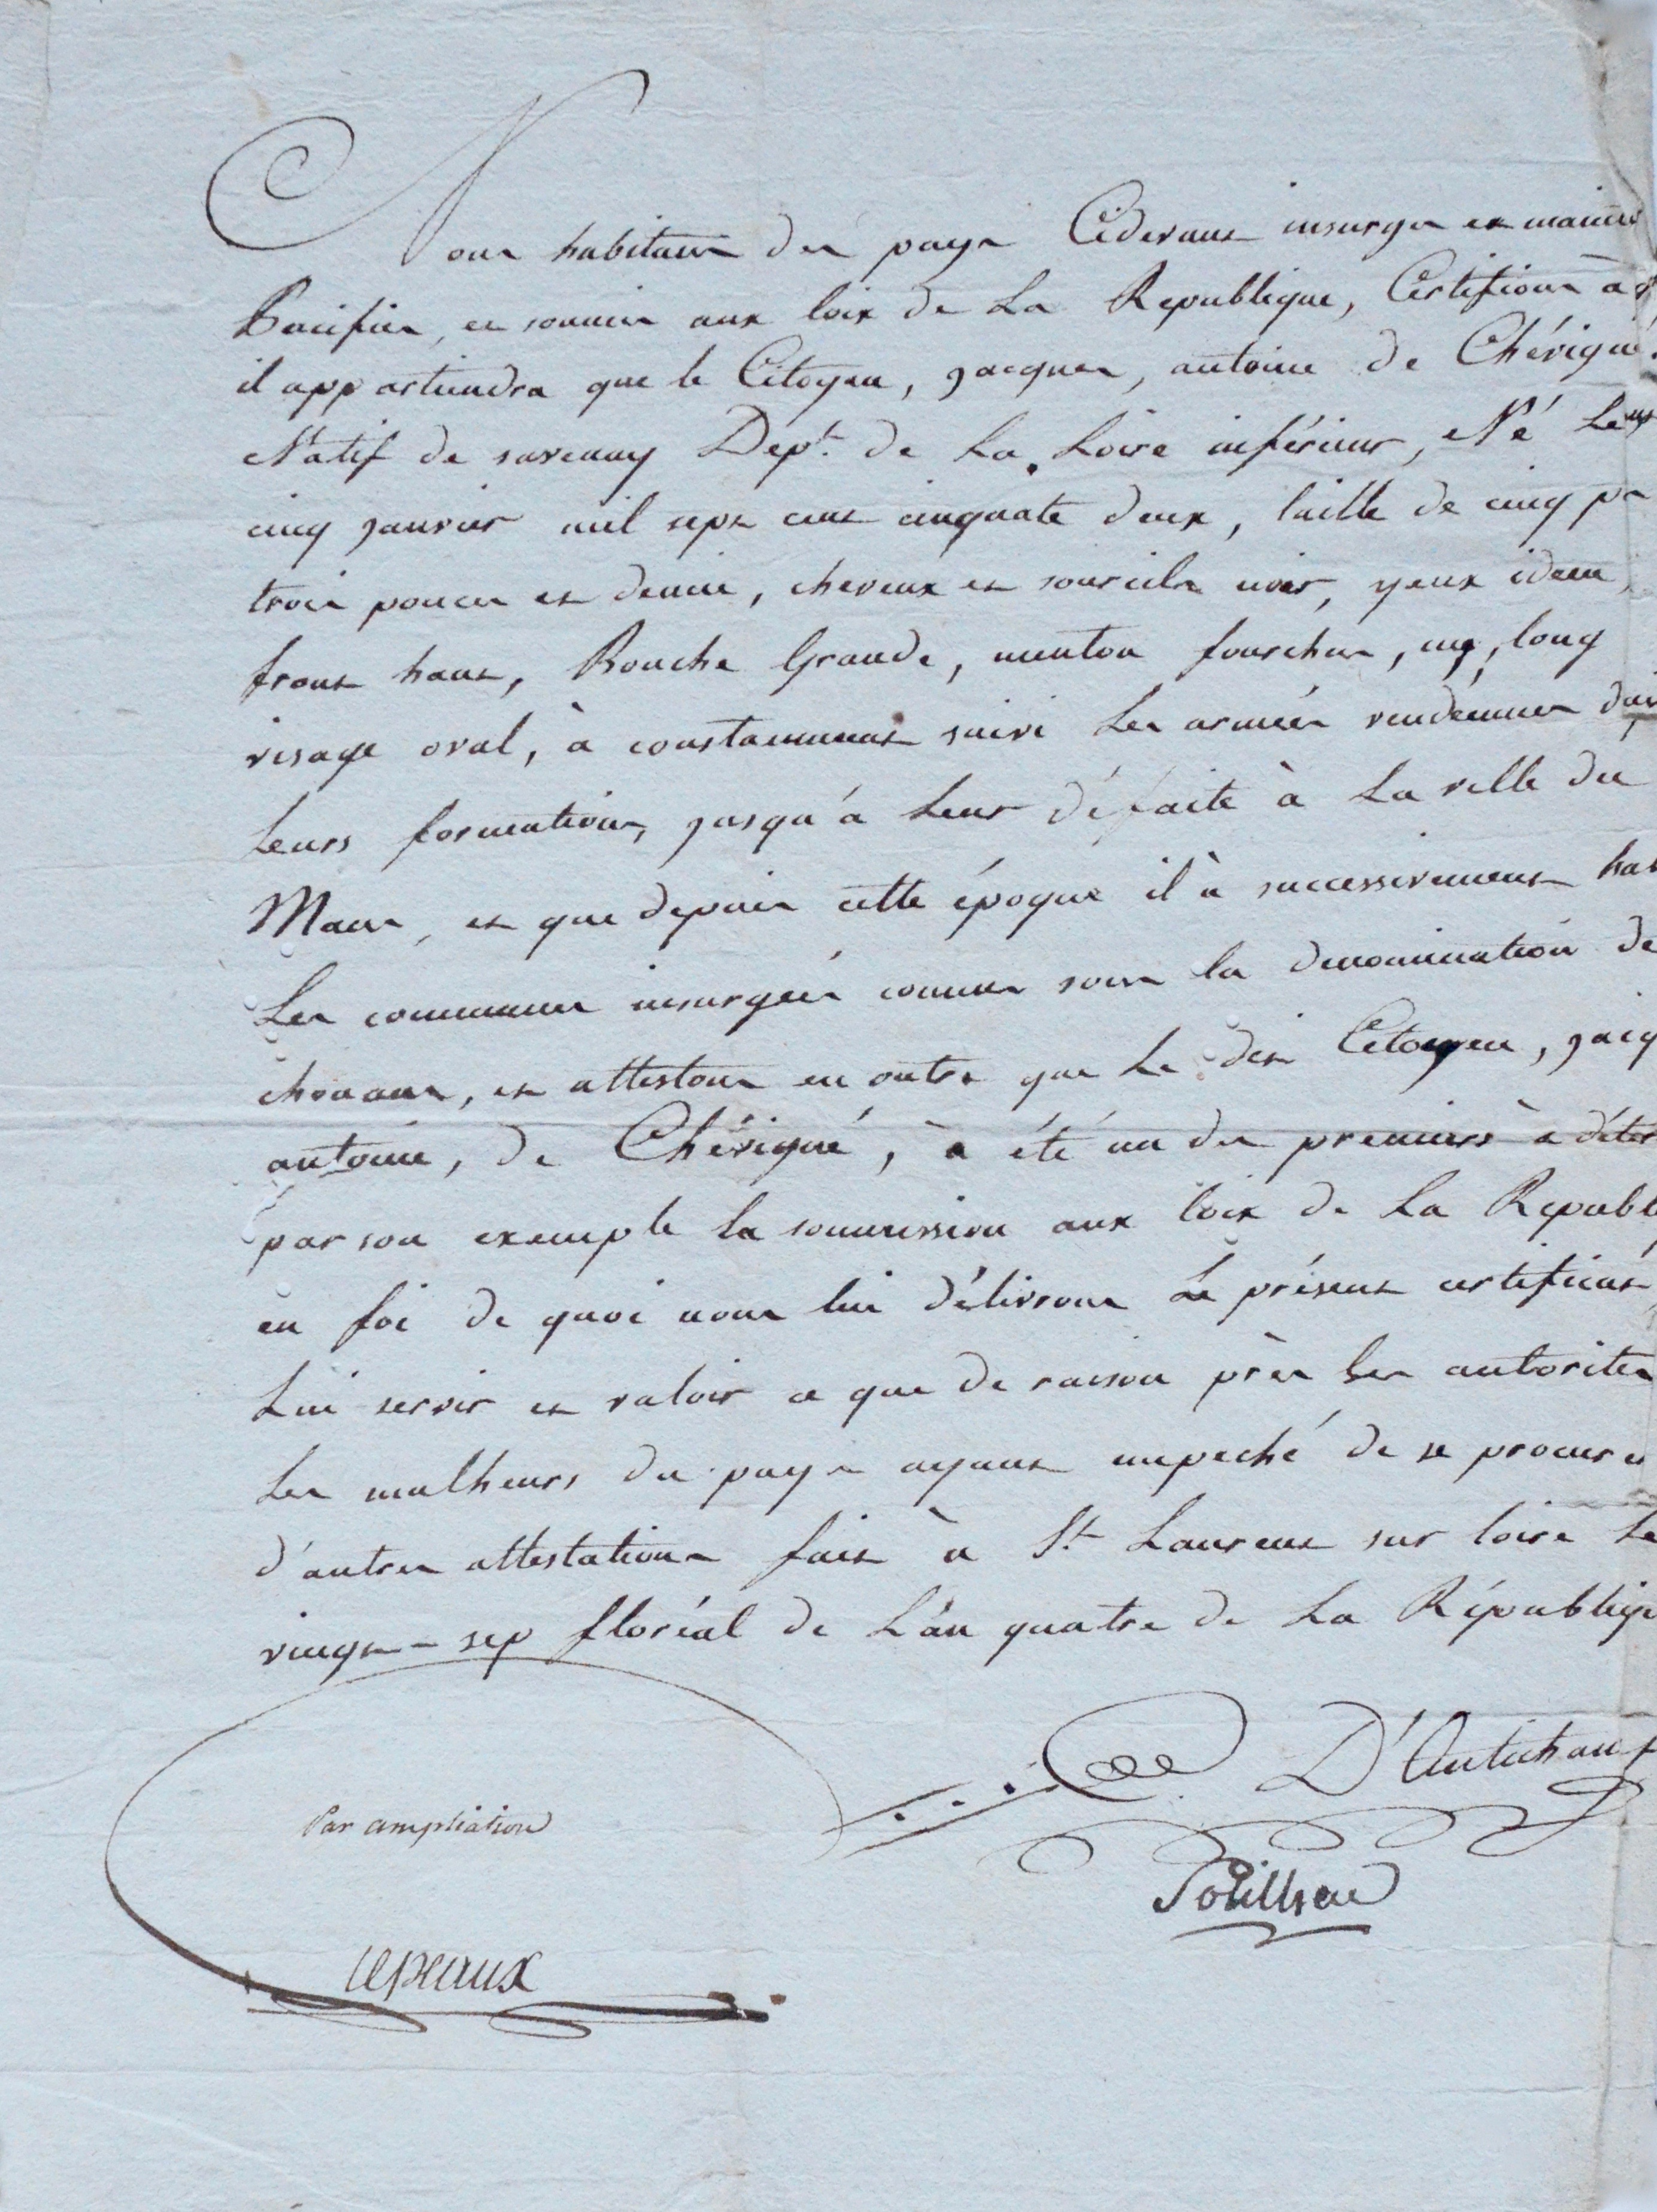 Nous habitans des pays Cidevant insurgés et mainte
Pacifiés, et soumis aux loix de La Republique, Certifions à q
il appartiendra que le Citoyen, jacques, antoine de Chévigné.
Natif de savenay Dept. de La Loire inférieur, Né Le
cinq janvier mil sept cent cinquate deux, taille de cinq pi
trois pouces et demie, cheveux et sourcils noir, yeux idem,
front haut, Bouche Grande, menton fourchus, nez, long
visage oval, à constamment suivi Les armées vendéennes dep
Leurs formations, jusqu'à Leur défaite à La ville du
Mans, et que depuis cette époque il à successivement hab
Les communes insurgées connues sous la denomination de
chouans, et attestons en outre que Le dit Citoyen, jacq
antoine, de Chévigné, à été un des premiers à déter
par son exemple la soumission aux loix de La Republi
en foi de quoi nous lui délivrons Le présent certificat
Lui servir et valoir ce que de raison près les autorités
Les malheurs du pays ayant empeché de se procurer
d'autres attestations fait à St Laurent sur loire Le
vingt-sep floréal de L'an quatre de La Républiqu
D'Autichamp
Par ampliation
cepeaux